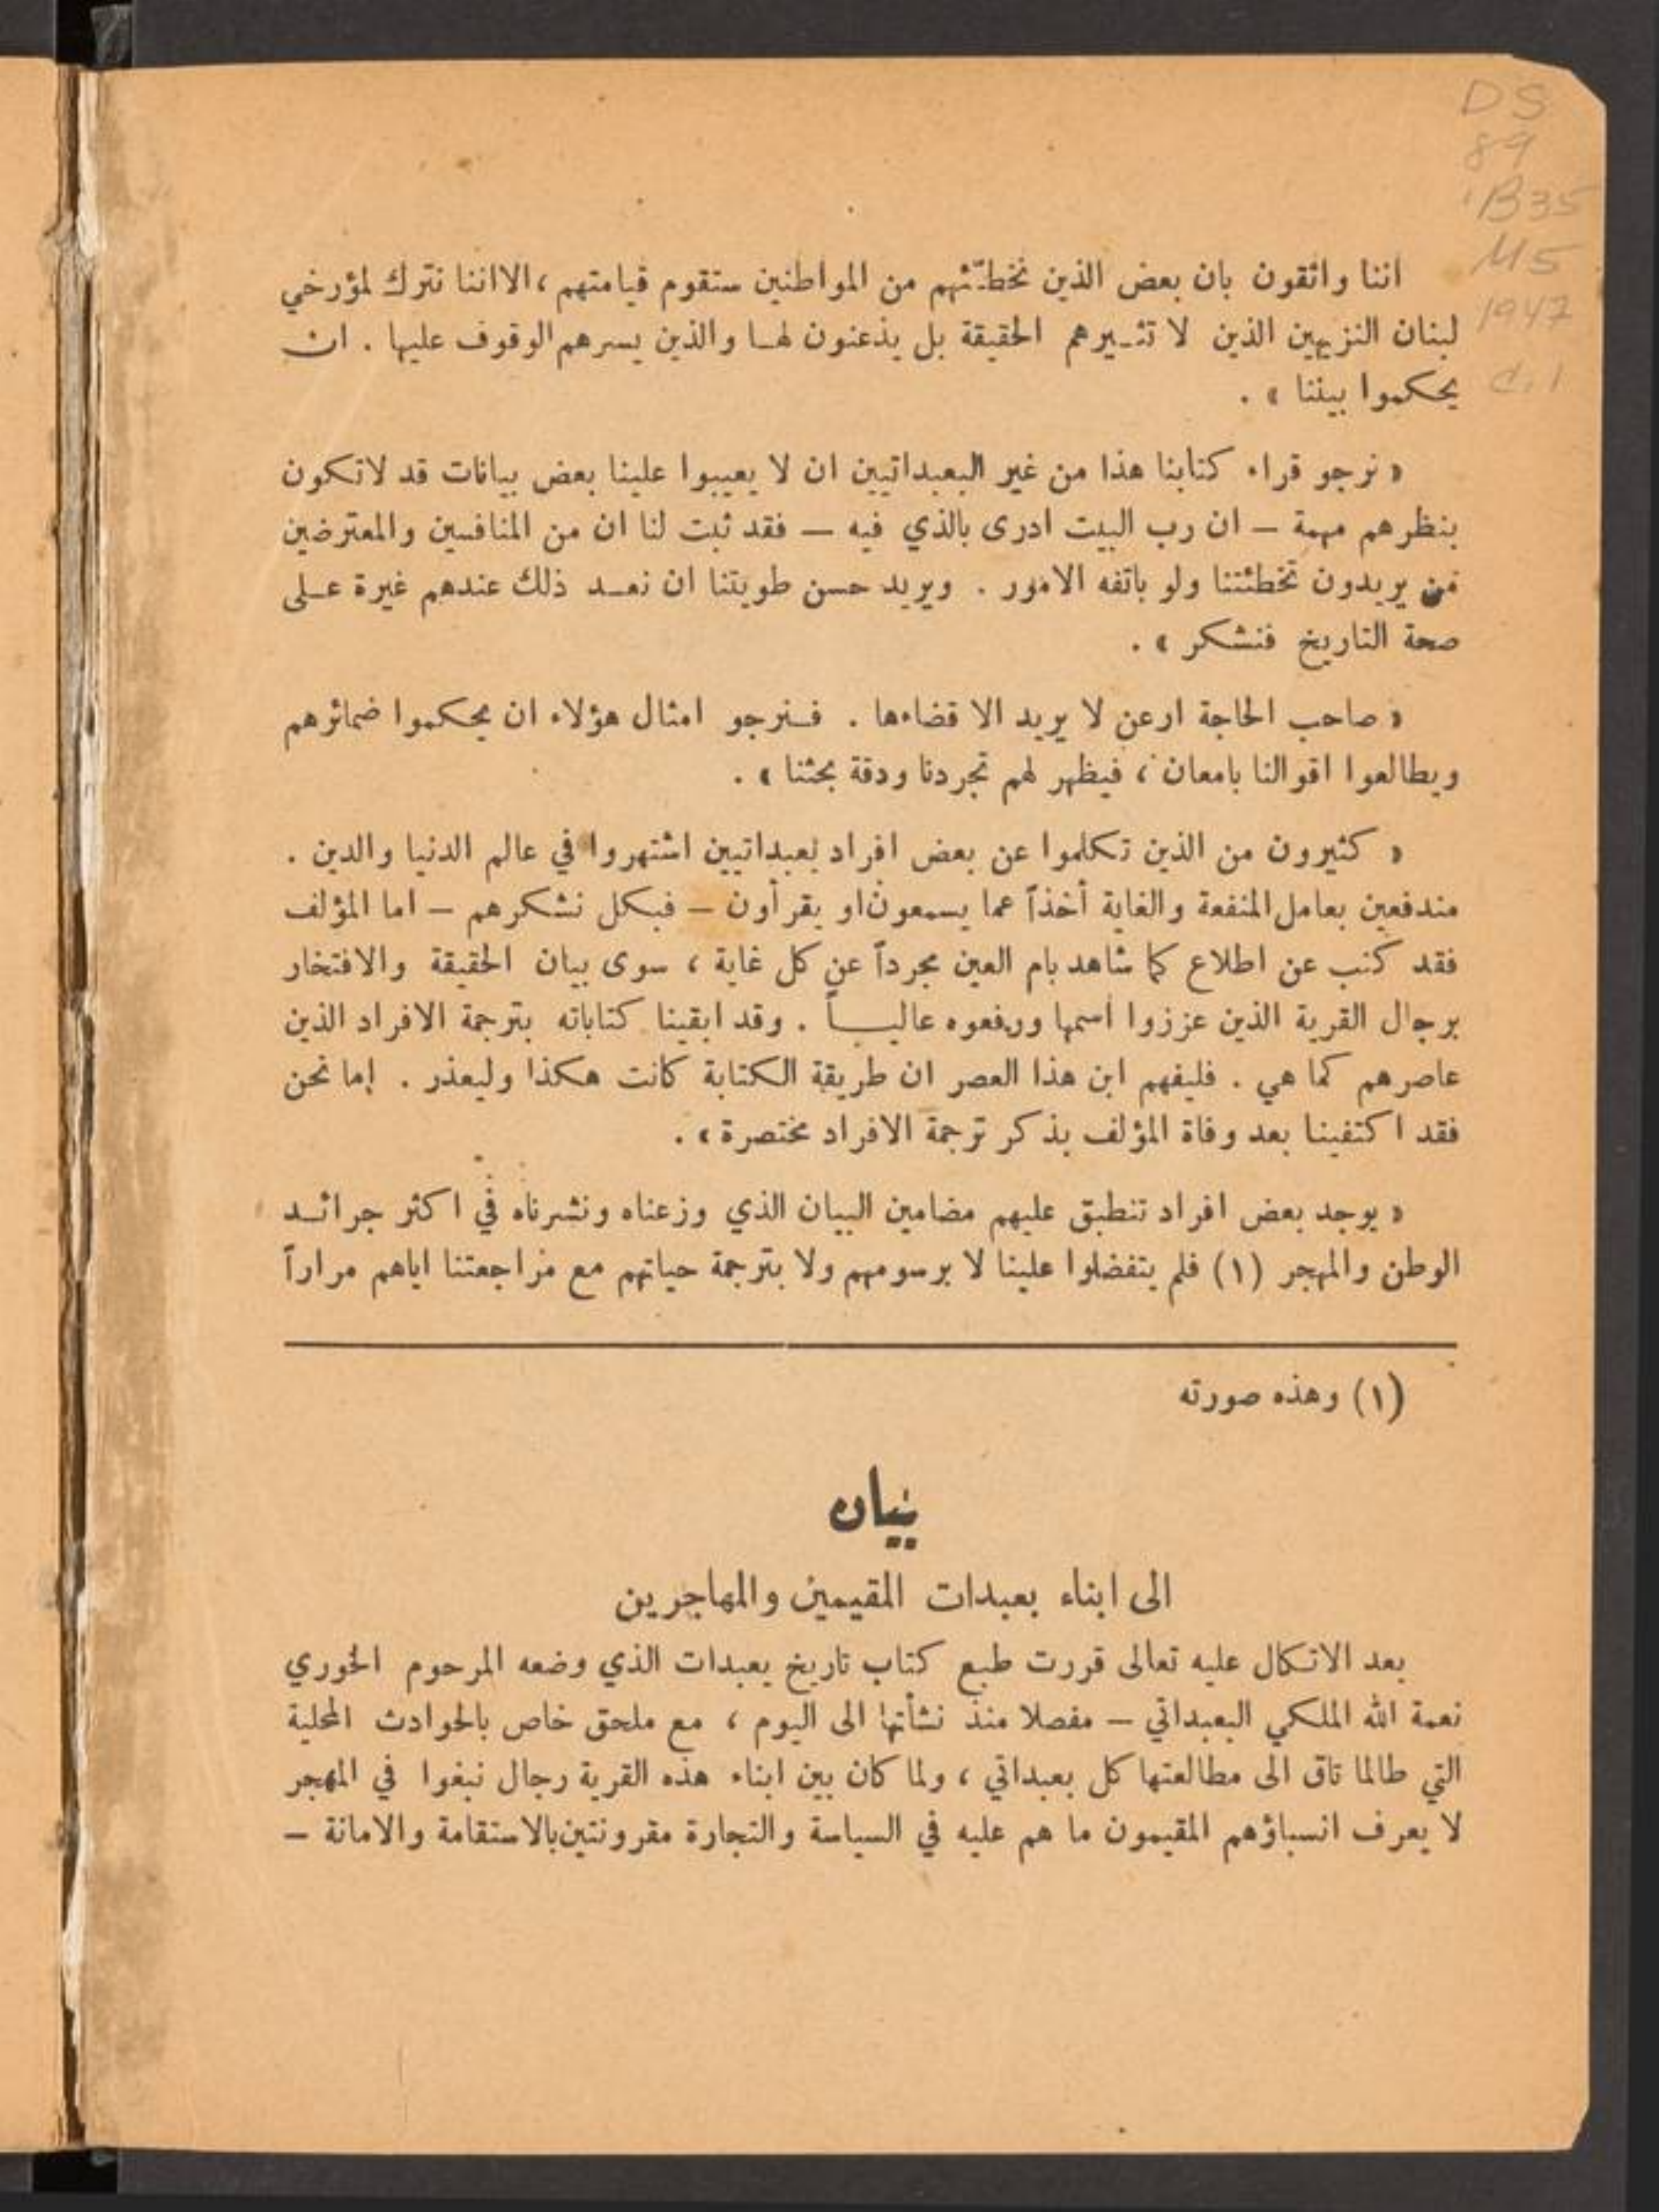 DS
89
.B35
M5
1947
c.1
اننا واثقون بان بعض الذين نخطّئهم من المواطنين ستقوم قيامتهم ، الا اننا نترك لمؤرخي
لبنان النزيهين الذين لا تثيرهم الحقيقة بل يذعنون لها والذين يسرهم الوقوف عليها . ان
يحكموا بيننا » .
« نرجو قراء كتابنا هذا من غير البعبداتيين ان لا يعيبوا علينا بعض بيانات قد لا تكون
بنظرهم مهمة – ان رب البيت ادرى بالذي فيه – فقد ثبت لنا ان من المنافسين والمعترضين
من يريدون تخطئتنا ولو باتفه الامور . ويريد حسن طويتنا ان نعد ذلك عندهم غيرة على
صحة التاريخ فنشكر » .
« صاحب الحاجة ارعن لا يريد الا قضاءها . فنرجو امثال هؤلاء ان يحكموا ضمائرهم
ويطالعوا اقوالنا بامعان ، فيظهر لهم تجردنا ودقة بحثنا » .
« كثيرون من الذين تكلموا عن بعض افراد بعبداتيين اشتهروا في عالم الدنيا والدين .
مندفعين بعامل المنفعة والغاية أخذاً عما يسمعون او يقرأون – فبكل نشكرهم – اما المؤلف
فقد كتب عن اطلاع كما شاهد بام العين مجرداً عن كل غاية ، سوى بيان الحقيقة والافتخار
برجال القرية الذين عززوا اسمها ورفعوه عالياً . وقد ابقينا كتاباته بترجمة الافراد الذين
عاصرهم كما هي . فليفهم ابن هذا العصر ان طريقة الكتابة كانت هكذا وليعذر . اما نحن
فقد اكتفينا بعد وفاة المؤلف بذكر ترجمة الافراد مختصرة » .
« يوجد بعض افراد تنطبق عليهم مضامين البيان الذي وزعناه ونشرناه في اكثر جرائد
الوطن والمهجر (١) فلم يتفضلوا علينا لا برسومهم ولا بترجمة حياتهم مع مراجعتنا اياهم مراراً
(١) وهذه صورته
بيان
الى ابناء بعبدات المقيمين والمهاجرين
بعد الاتكال عليه تعالى قررت طبع كتاب تاريخ بعبدات الذي وضعه المرحوم الخوري
نعمة الله الملكي البعبداتي – مفصلا منذ نشأتها الى اليوم ، مع ملحق خاص بالحوادث المحلية
التي طالما تاق الى مطالعتها كل بعبداتي ، ولما كان بين ابناء هذه القرية رجال نبغوا في المهجر
لا يعرف انسباؤهم المقيمون ما هم عليه في السياسة والتجارة مقرونتين بالاستقامة والامانة –